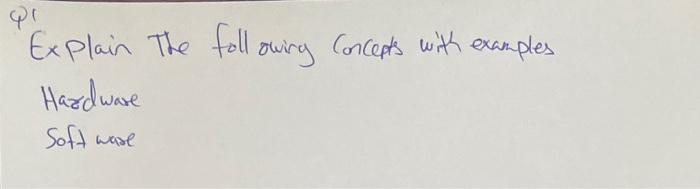 Q1
Explain The following Concepts with examples
Hardware
Software